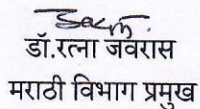 डॉ.रत्ना जवरास
मराठी विभाग प्रमुख